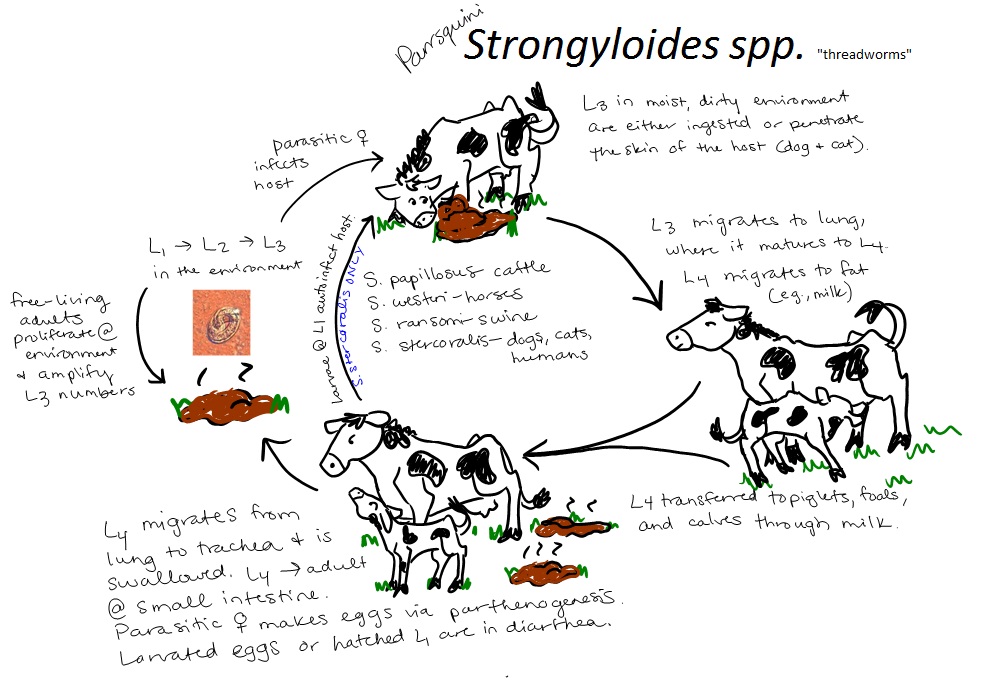 Parrsquini
Strongyloides spp. "threadworms"
L3 in moist, dirty environment
are either ingested or penetrate
the skin of the host (dog + cat).
parasitic ♀
infects
host
L3 migrates to lung,
where it matures to L4.
L4 migrates to fat
(e.g., milk)
L1 → L2 → L3
in the environment
free-living
adults
proliferate @
environment
+ amplify
L3 numbers
larvae @ L1 autoinfect host.
S. stercoralis ONLY
S. papillosus- cattle
S. westri-horses
S. ransomi-swine
S. stercoralis-dogs, cats,
humans
L4 transferred to piglets, foals,
and calves through milk.
L4 migrates from
lung to trachea + is
swallowed. L4 → adult
@ small intestine.
Parasitic ♀ makes eggs via parthenogenesis.
Larvated eggs or hatched L1 are in diarrhea.